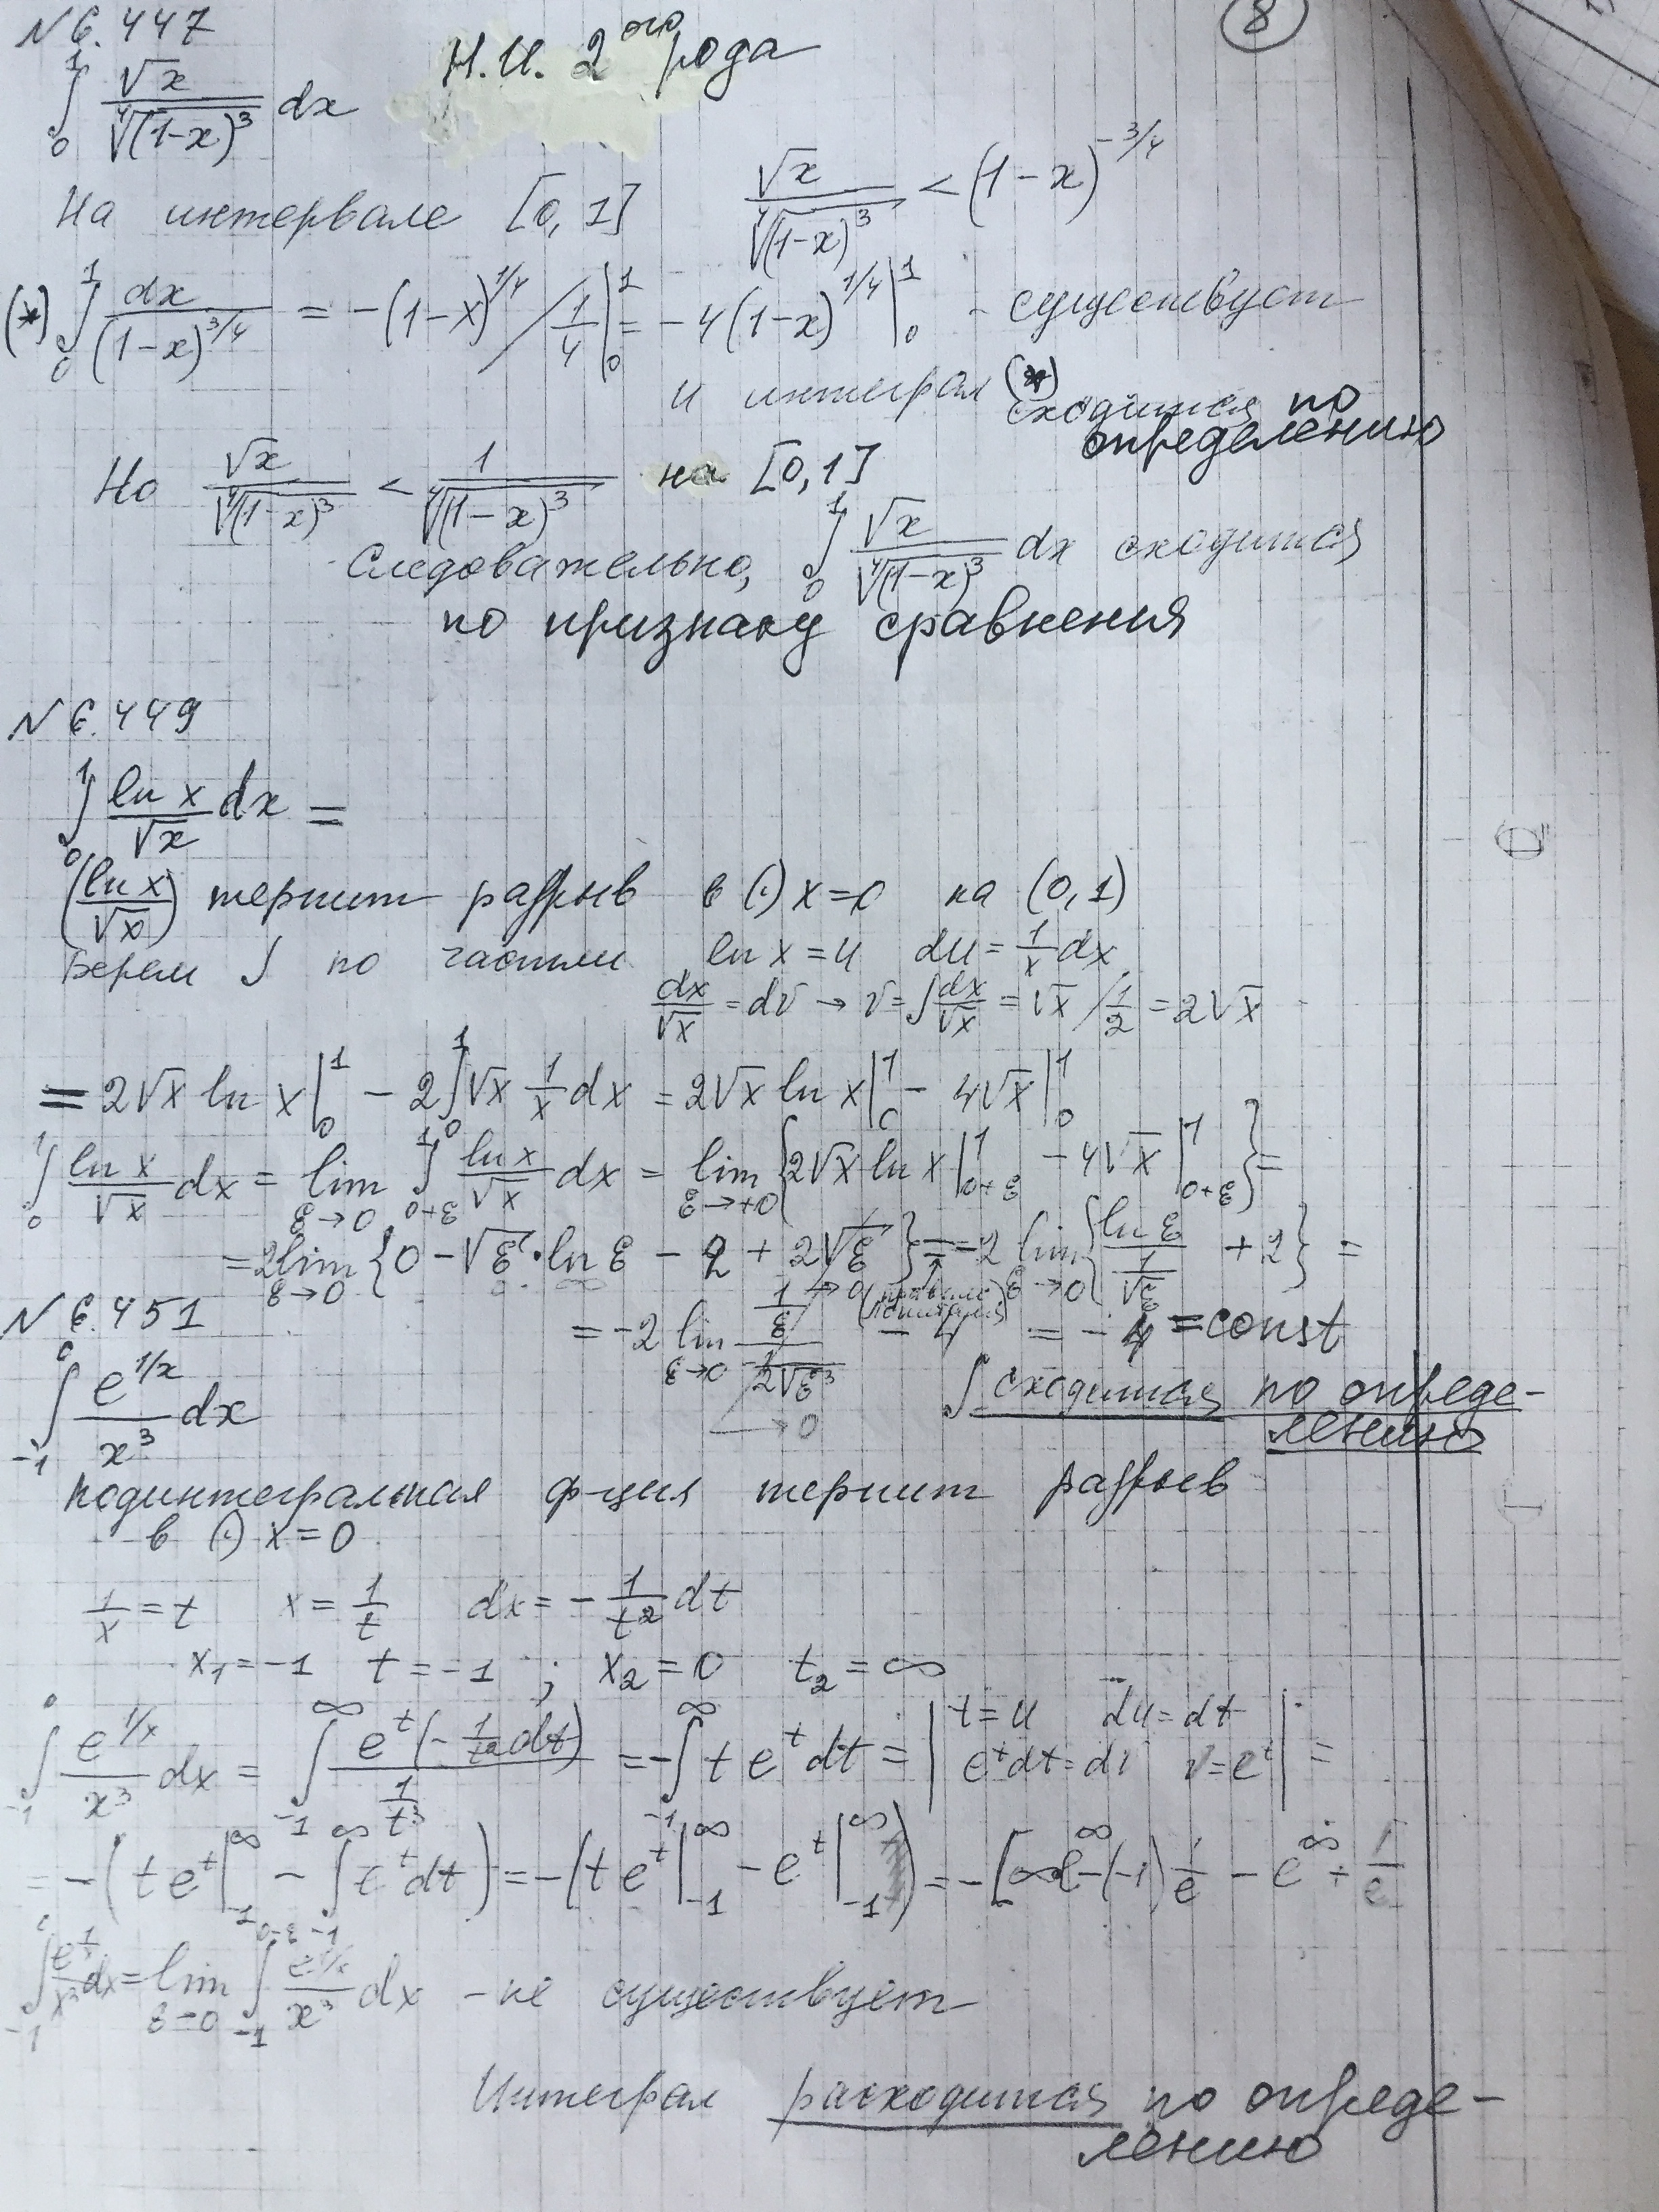 N 6.447
Н.И. 2ого рода
8
∫₀¹ √x / ∜(1-x)³ dx
На интервале [0, 1] √x / ∜(1-x)³ < (1-x)^(-3/4)
(*) ∫₀¹ dx / (1-x)^(3/4) = -(1-x)^(1/4) / (1/4) |₀¹ = -4(1-x)^(1/4) |₀¹ - существует
и интеграл (*) сходится по
определению
Но √x / ∜(1-x)³ < 1 / ∜(1-x)³ на [0,1]
Следовательно, ∫₀¹ √x / ∜(1-x)³ dx сходится
по признаку сравнения
N 6.449
∫₀¹ ln x / √x dx =
(ln x / √x) терпит разрыв в (.) x=0 на (0,1)
Берем ∫ по частям ln x = u du = 1/x dx
dx/√x = dv → v = ∫ dx/√x = √x / (1/2) = 2√x
= 2√x ln x |₀¹ - 2 ∫₀¹ √x 1/x dx = 2√x ln x |₀¹ - 4√x |₀¹
∫₀¹ ln x / √x dx = lim ε→0 ∫₀₊ε¹ ln x / √x dx = lim ε→+0 {2√x ln x |₀₊ε¹ - 4√x |₀₊ε¹} =
= 2 lim ε→0 {0 - √ε · ln ε - 2 + 2√ε →0} = -2 lim ε→0 {ln ε / (1/√ε) + 2} =
(правило Лопиталя)
= -2 lim ε→0 (1/ε) / (-1/2√ε³) →0 - 4 = -4 = const
∫ сходится по опреде-
лению
N 6.451
∫₋₁⁰ e^(1/x) / x³ dx
подинтегральная ф-ция терпит разрыв
в (.) x=0
1/x = t x = 1/t dx = - 1/t² dt
x₁ = -1 t = -1 ; x₂ = 0 t₂ = ∞
∫₋₁⁰ e^(1/x) / x³ dx = ∫₋₁^∞ e^t (- 1/t² dt) / (1/t³) = -∫₋₁^∞ t e^t dt = | t = u du = dt e^t dt = dv v = e^t | =
= -(t e^t |₋₁^∞ - ∫₋₁^∞ e^t dt) = -(t e^t |₋₁^∞ - e^t |₋₁^∞) = -[∞e^∞ - (-1) 1/e - e^∞ + 1/e
∫₋₁⁰ e^(1/x) / x³ dx = lim ε→0 ∫₋₁^(0-ε) e^(1/x) / x³ dx - не существует
Интеграл расходится по опреде-
лению